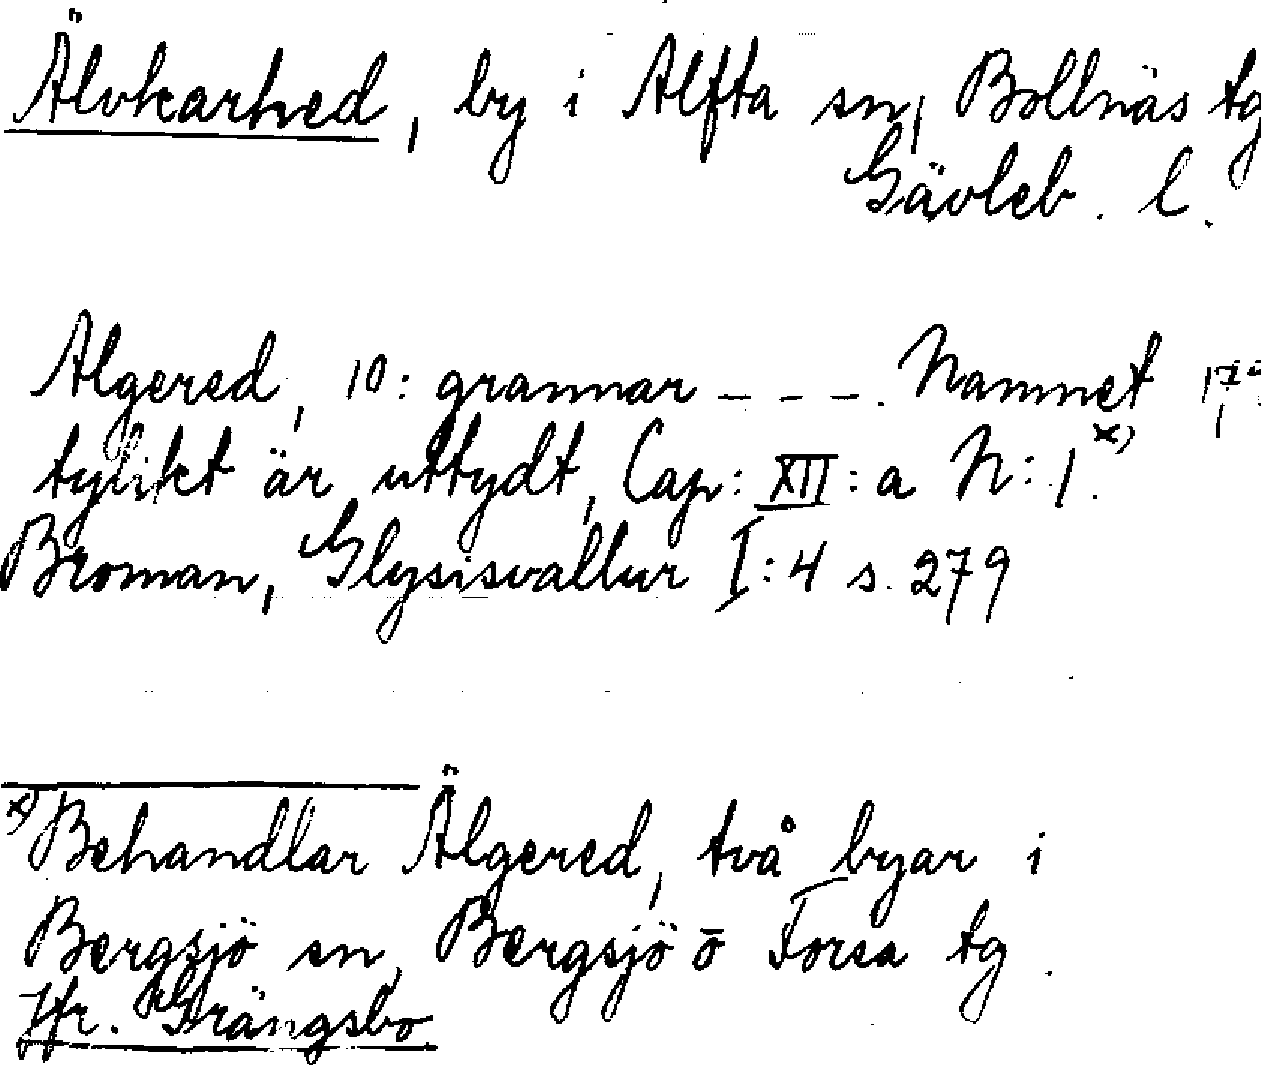 Älvkarhed, by i Alfta sn, Bollnäs tg
Gävleb. l.
Algered, 10: grannar _ _ _. Namnet
tylikt är uttydt, Cap: XII: a N: 1.x)
Broman, Glysisvallur I:4 s. 279
x) Behandlar Älgered, två byar i
Bergsjö sn, Bergsjö o Forsa tg.
Jfr. Grängsbo